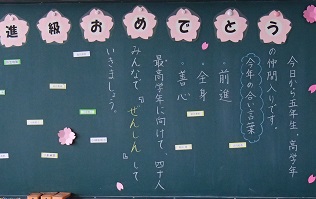 進級おめでとう
今日から五年生。高学年
の仲間入りです。
今年の合い言葉
・前進
・全身
・善心
最高学年に向けて、四十人
みんなで『ぜんしん』して
いきましょう。